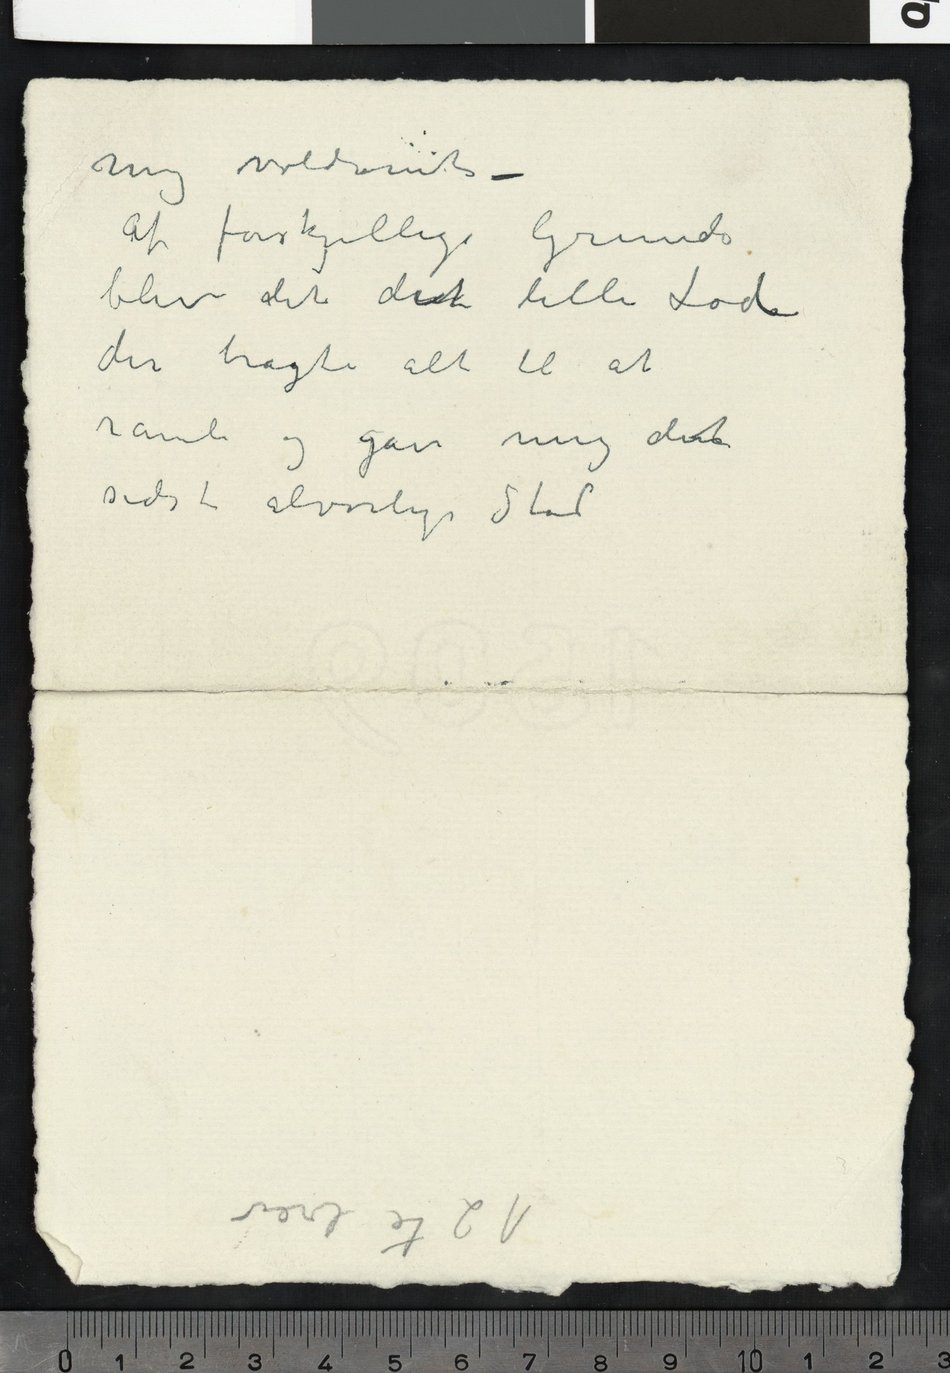 mig voldsomt –
Af forskjellige Grunde
blev det det lille Lod
der bragte alt til at
ramle og gav mig det
sidste alvorlige Stød
1509
12te brev
0 1 2 3 4 5 6 7 8 9 10 1 2 3